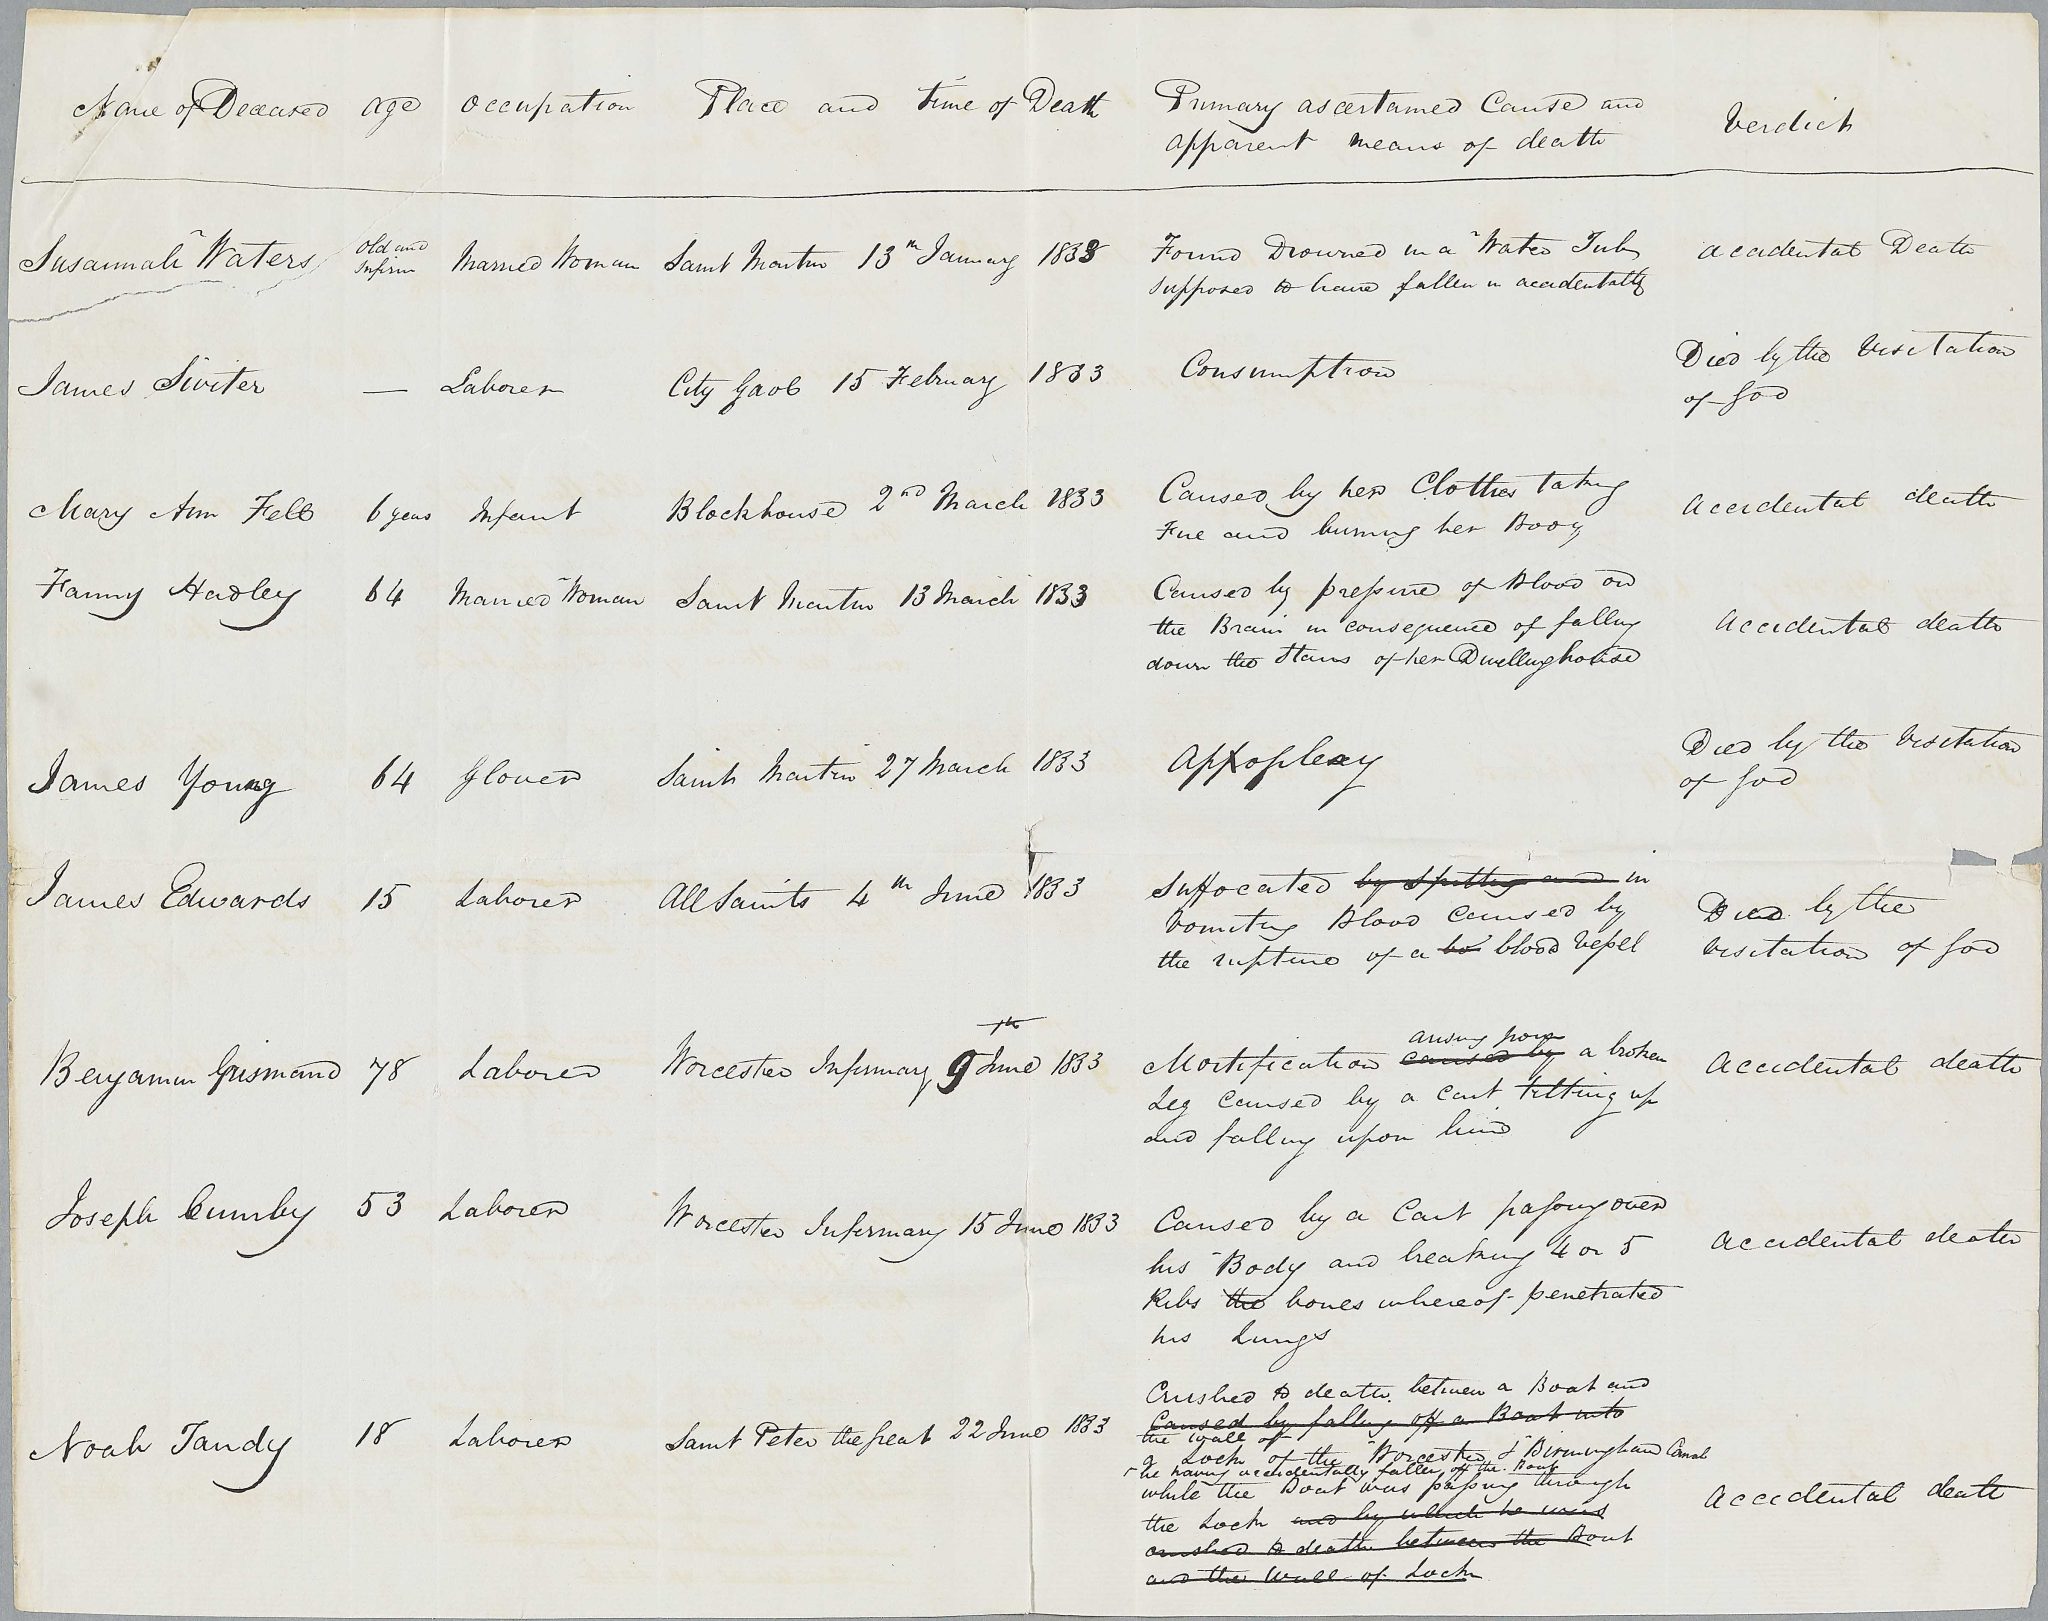 Name of Deceased age occupation Place and time of Death Primary ascertained Cause and
apparent means of death Verdict
Susannah Waters Old and Infirm Married Woman Saint Martin 13th January 1833 Found Drowned in a Water Tub accidental Death
supposed to have fallen in accidentally
James Siviter — Laborer City Gaol 15 February 1833 Consumption Died by the Visitation
of God
Mary Ann Fell 6 years Infant Blockhouse 2nd March 1833 Caused by her Clothes taking accidental death
Fire and burning her Body
Fanny Hadley 64 Married Woman Saint Martin 13 March 1833 Caused by pressure of Blood on
the Brain in consequence of falling accidental death
down the Stairs of her Dwellinghouse
James Young 64 Glover Saint Martin 27 March 1833 Appoplexy Died by the Visitation
of God
James Edwards 15 Laborer All Saints 4th June 1833 Suffocated by spitting and in
Vomiting Blood caused by Died by the
the rupture of a bo blood Vessel visitation of God
arising from
Benjamin Grismand 78 Laborer Worcester Infirmary 9th June 1833 Mortification caused by a broken accidental death
Leg caused by a cart tilting up
and falling upon him
Joseph Cumby 53 Laborer Worcester Infirmary 15 June 1833 Caused by a Cart passing over accidental death
his Body and breaking 4 or 5
Ribs the bones whereof penetrated
his Lungs
Crushed to death between a Boat and
Noah Tandy 18 Laborer Saint Peter the Great 22 June 1833 Caused by falling off a Boat into
the wall of
a Lock of the Worcester & Birmingham Canal
he having accidentally fallen off the Boat
while the Boat was passing through accidental death
the Lock and by which he was
crushed to death between the Boat
and the Wall of Lock